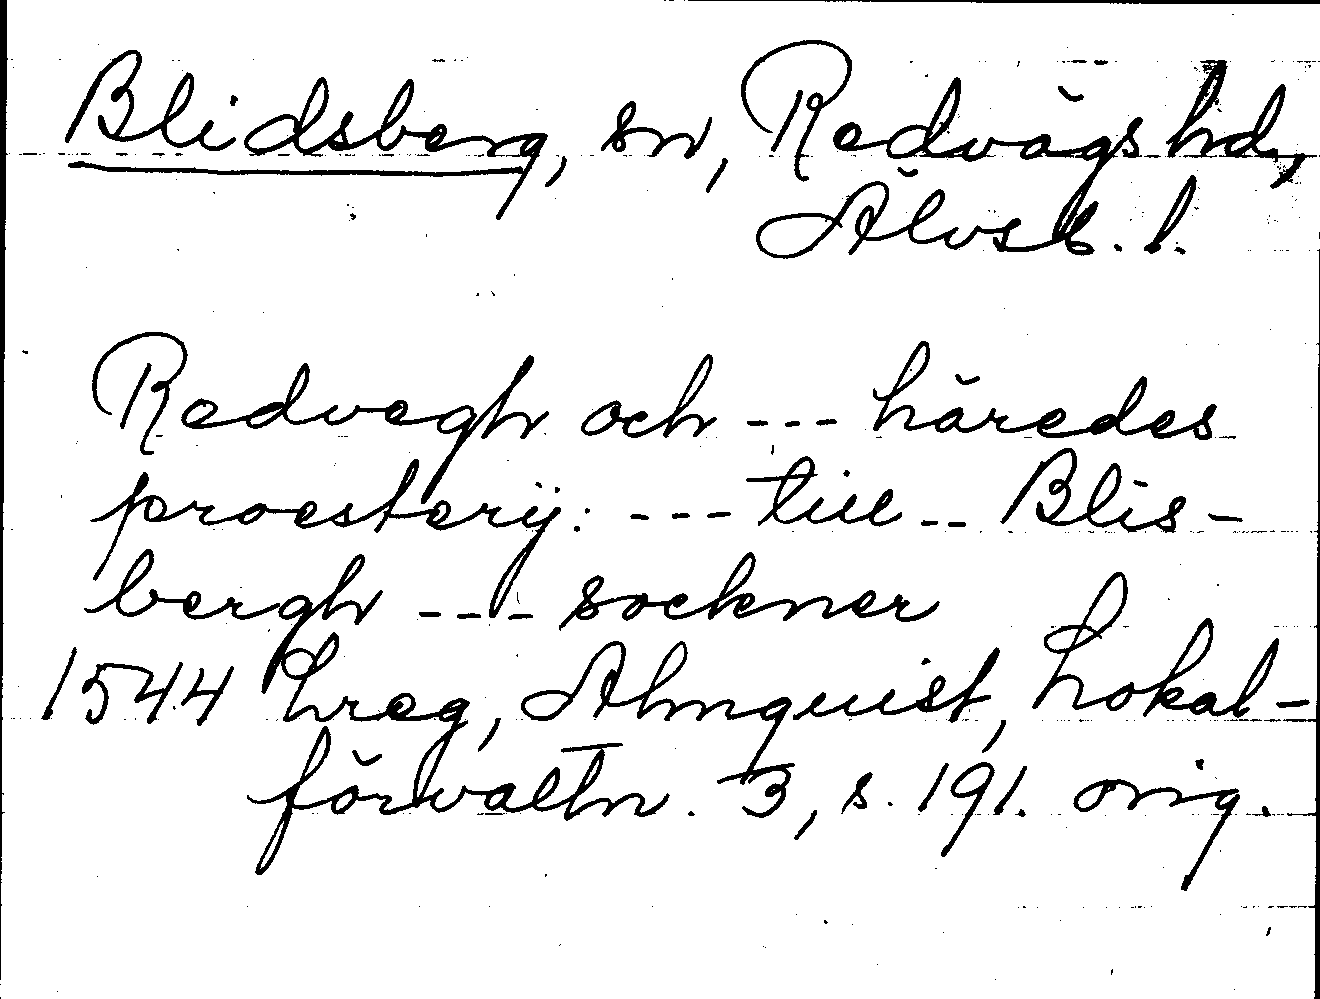 Blidsberg, sn, Redvägs hd,
Älvsb. l.
Redvegh och --- häredes
proesterij: --- till -- Blis-
bergh --- sockner
1544 Lreg, Almquist, Lokal-
förvaltn. 3, s. 191. orig.